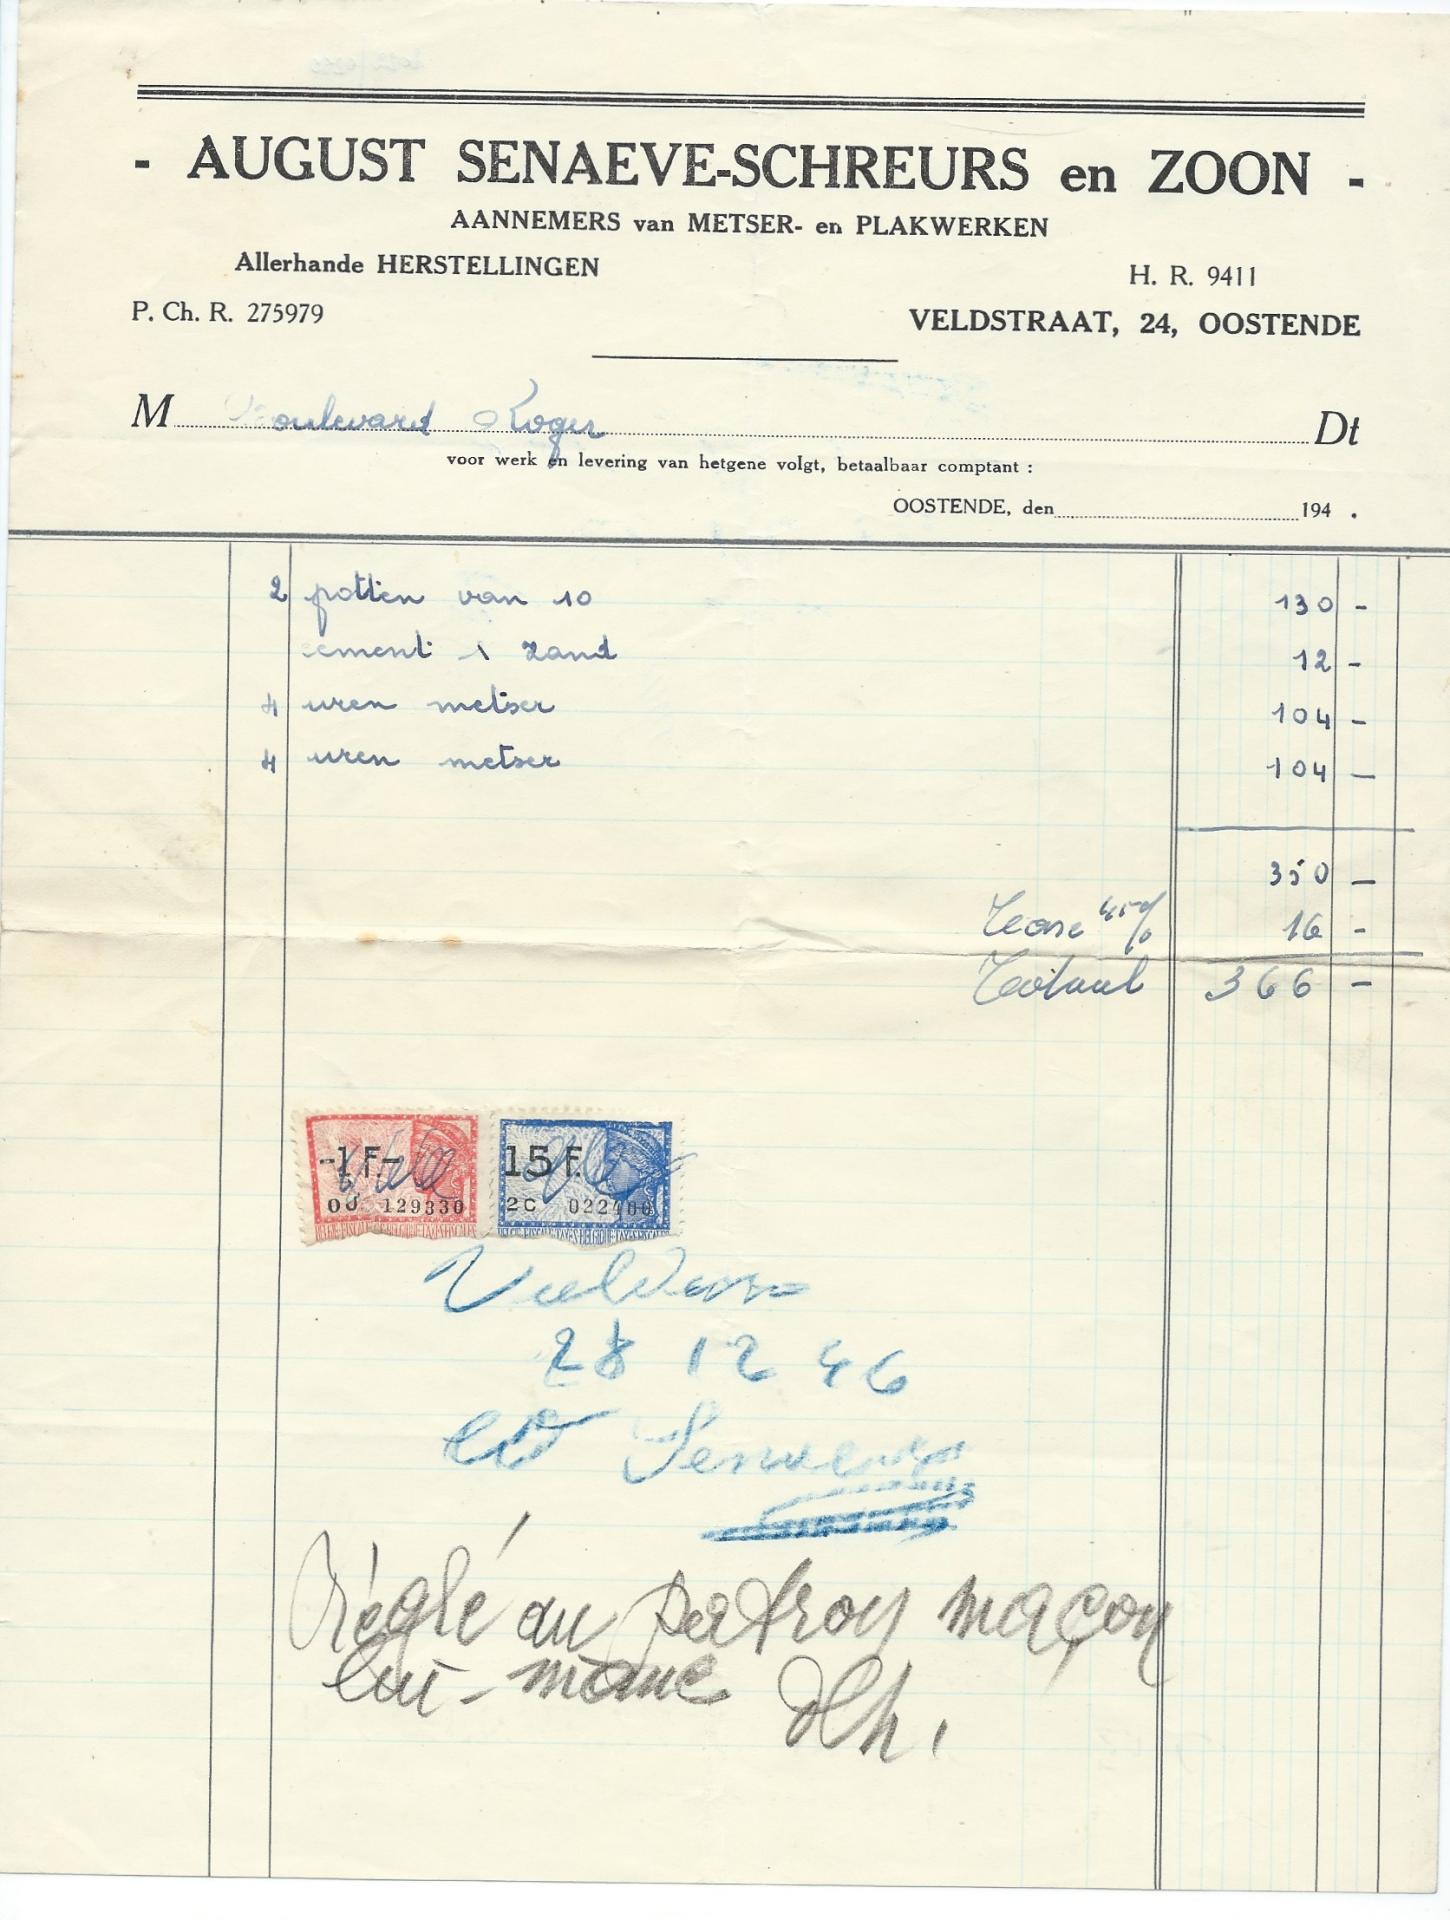 - AUGUST SENAEVE-SCHREURS en ZOON -
AANNEMERS van METSER- en PLAKWERKEN
Allerhande HERSTELLINGEN
H. R. 9411
P. Ch. R. 275979
VELDSTRAAT, 24, OOSTENDE
M Boulevard Roger Dt
voor werk en levering van hetgene volgt, betaalbaar comptant :
OOSTENDE, den 194 .
2 potten van 10 130 -
cement & zand 12 -
4 uren metser 104 -
4 uren metser 104 -
350 -
Taxe 4,5 % 16 -
Totaal 366 -
-1 F-
OJ 129330
15 F.
2C 022400
BELGIE-FISCALE TAXES-BELGIQUE-TAXES FISCALES
Voldaan
28 12 46
Senaeve
Réglé au patron maçon
lui-même